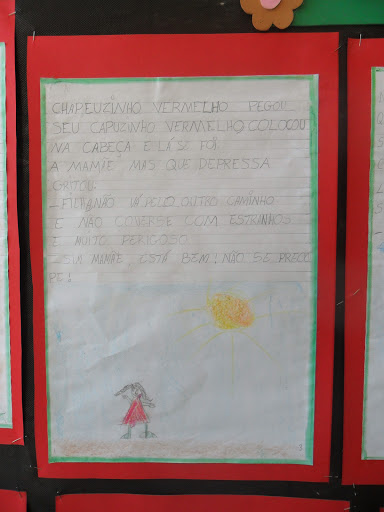 CHAPEUZINHO VERMELHO PEGOU
SEU CAPUZINHO VERMELHO, COLOCOU
NA CABEÇA E LÁ SE FOI.
A MAMÃE MAS QUE DEPRESSA
GRITOU:
- FILHA NÃO VÁ PELO OUTRO CAMINHO
E NÃO COVERSE COM ESTRINHOS
E MUITO PERIGOSO.
- SIM MAMÃE ESTÁ BEM! NÃO SE PREOCU
PE!